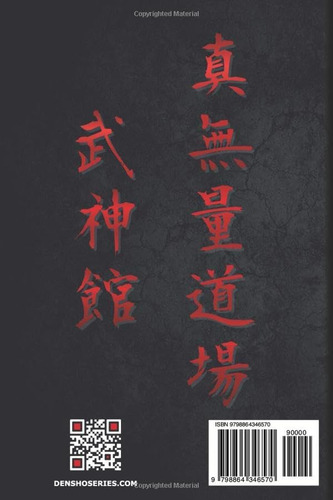 Copyrighted Material
真無量道場
武神館
ISBN 9798864346570
90000
9 798864 346570
DENSHOSERIES.COM
Copyrighted Material